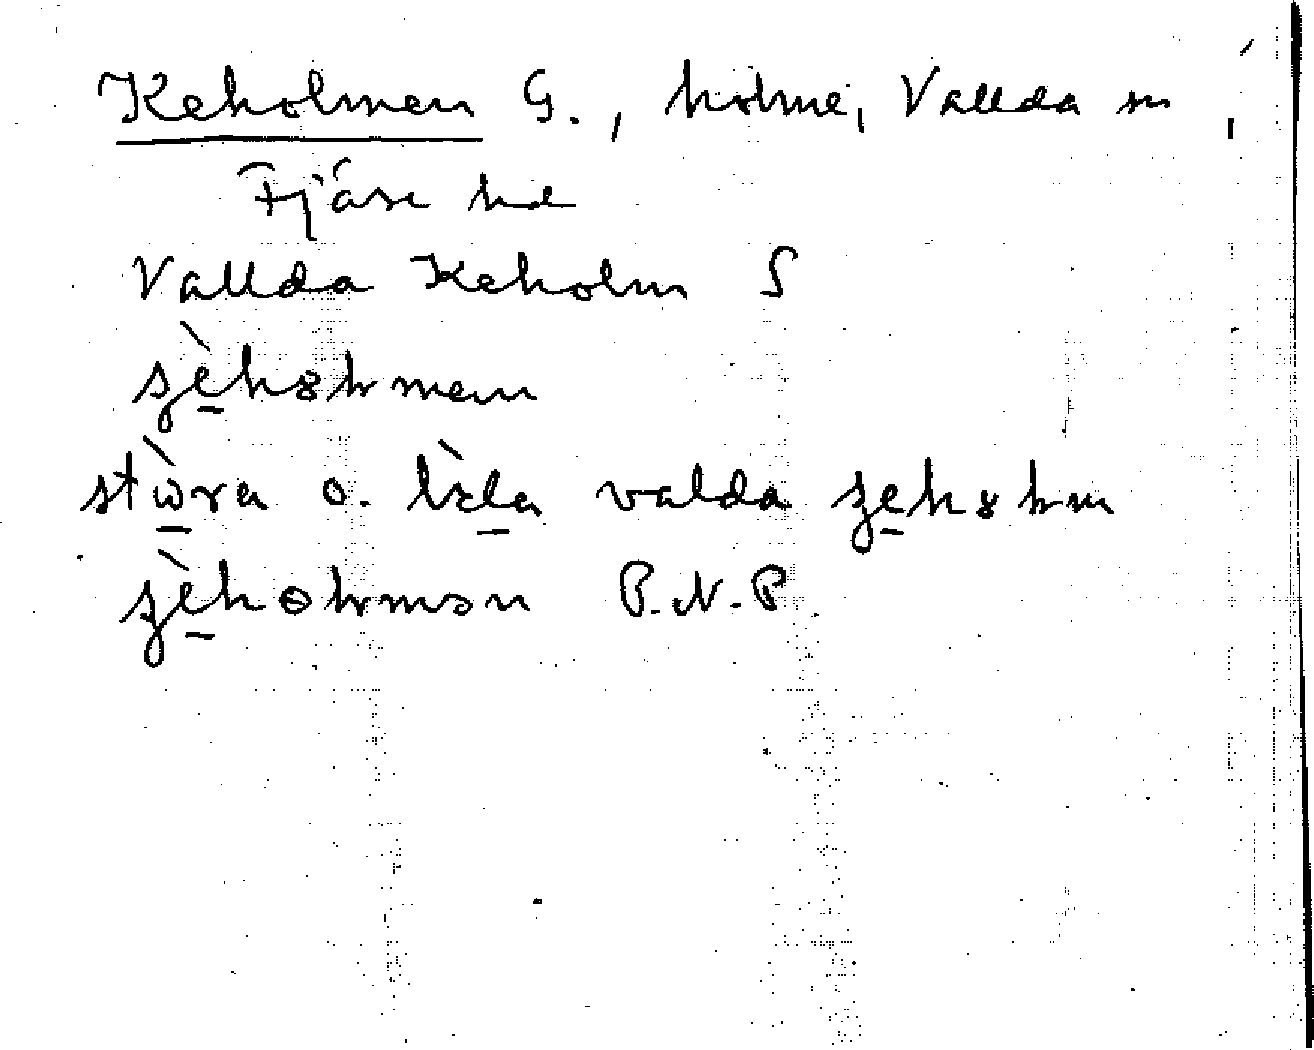 Keholmen G., holme, Vallda sn,
Fjäre hd
Vallda Keholm S
sjèhȣlmen
stòra o. lìzla valda sjehȣlm
sjèhɵlmən P.N.P.